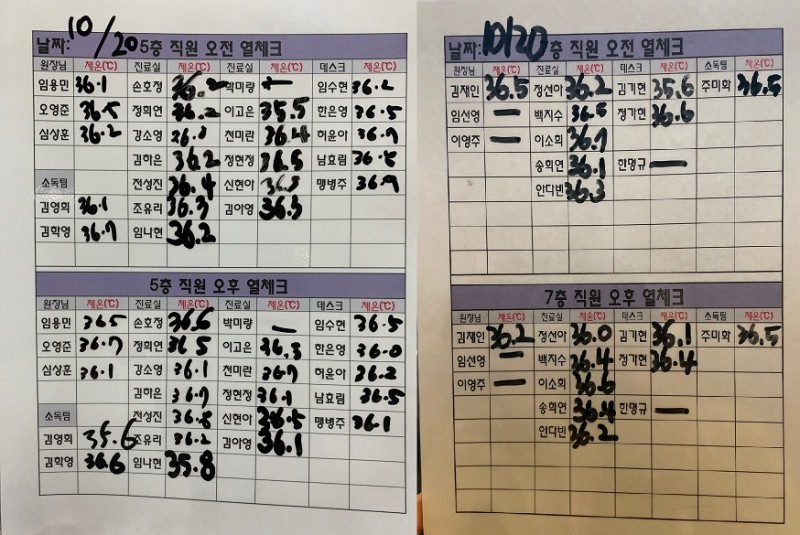 날짜: 10/20 5층 직원 오전 열체크
원장님 체온(℃) 진료실 체온(℃) 진료실 체온(℃) 데스크 체온(℃)
임용민 36.1 손호정 36.2 박미량 - 임수현 36.2
오영준 36.5 정희연 36.2 이고은 35.5 한은영 36.5
심상훈 36.2 강소영 천미란 36.4 허윤아 36.7
김하은 36.2 정현정 36.5 남효림
소독팀 전성진 36.4 신현아 36.3 맹병주 36.9
김영희 36.1 조유리 36.3 김아영 36.3
김학영 36.7 임나현 36.2
5층 직원 오후 열체크
원장님 체온(℃) 진료실 체온(℃) 진료실 체온(℃) 데스크 체온(℃)
임용민 36.5 손호정 36.6 박미량 - 임수현 36.5
오영준 36.7 정희연 36.5 이고은 36.3 한은영 36.0
심상훈 36.1 강소영 36.1 천미란 36.7 허윤아 36.2
김하은 36.7 정현정 36.1 남효림 36.5
소독팀 전성진 36.8 신현아 36.5 맹병주 36.1
김영희 35.6 조유리 36.2 김아영 36.1
김학영 36.6 임나현 35.8
날짜: 10/20 층 직원 오전 열체크
원장님 체온(℃) 진료실 체온(℃) 데스크 체온(℃) 소독팀 체온(℃)
김재인 36.5 정선아 36.2 김기현 35.6 주미화 36.5
임선영 - 백지수 36.5 정가현 36.6
이영주 - 이소희 36.7
송희연 36.1 한명규 -
안다빈 36.3
7층 직원 오후 열체크
원장님 체온(℃) 진료실 체온(℃) 데스크 체온(℃) 소독팀 체온(℃)
김재인 36.2 정선아 36.0 김기현 36.1 주미화 36.5
임선영 - 백지수 36.4 정가현 36.4
이영주 - 이소희 36.6
송희연 36.4 한명규 -
안다빈 36.2